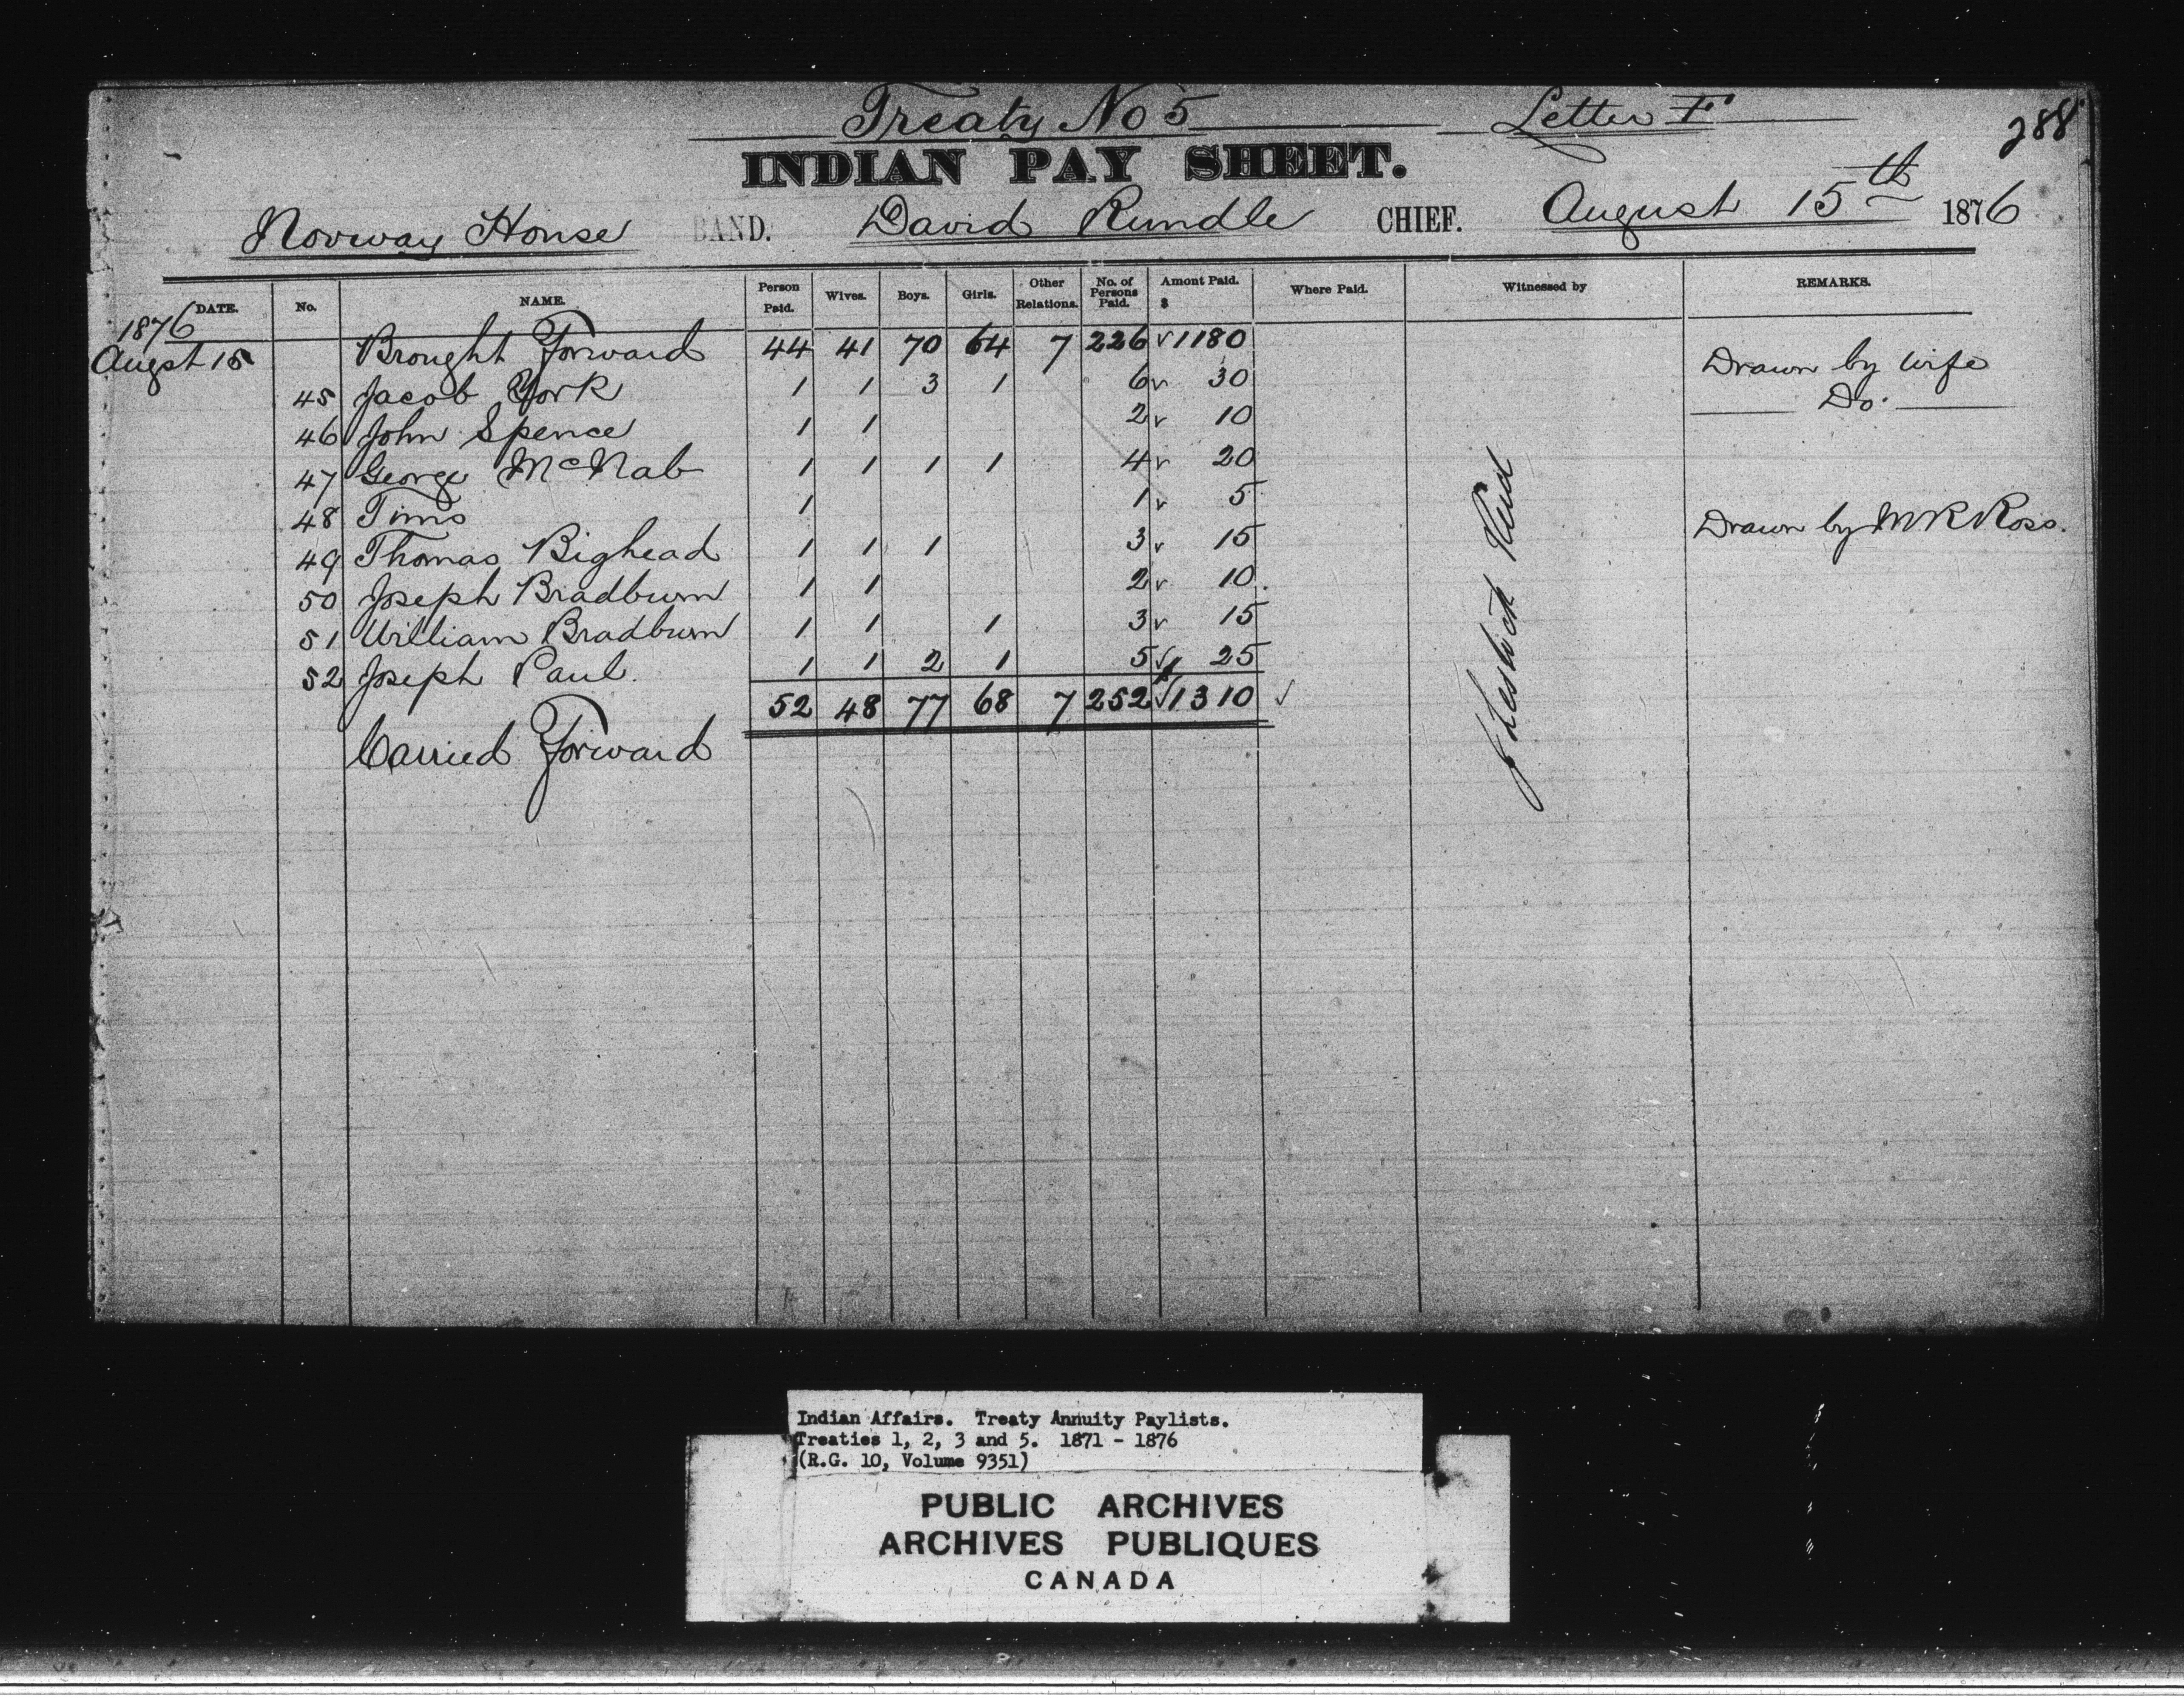 Treaty No 5 Letter F 288
INDIAN PAY SHEET.
Norway House BAND. David Rundle CHIEF. August 15th 1876
DATE. No. NAME. Person Paid. Wives. Boys. Girls. Other Relations. No. of Persons Paid. Amont Paid. $ Where Paid. Witnessed by REMARKS.
1876
Augst 15 Brought Forward 44 41 70 64 7 226 √ 1180
45 Jacob York 1 1 3 1 6 √ 30 Drawn by wife
46 John Spence 1 1 2 √ 10 Do.
47 George McNab 1 1 1 1 4 √ 20
48 Tims 1 1 √ 5
49 Thomas Bighead 1 1 1 3 √ 15 Drawn by M R Ross.
50 Joseph Bradburn 1 1 2 √ 10.
51 William Bradburn 1 1 1 3 √ 15
52 Joseph Paul. 1 1 2 1 5 √ 25
52 48 77 68 7 252 √ 1310 √
Carried Forward
J Lestock Reid
Indian Affairs. Treaty Annuity Paylists.
Treaties 1, 2, 3 and 5. 1871 - 1876
(R.G. 10, Volume 9351)
PUBLIC ARCHIVES
ARCHIVES PUBLIQUES
CANADA